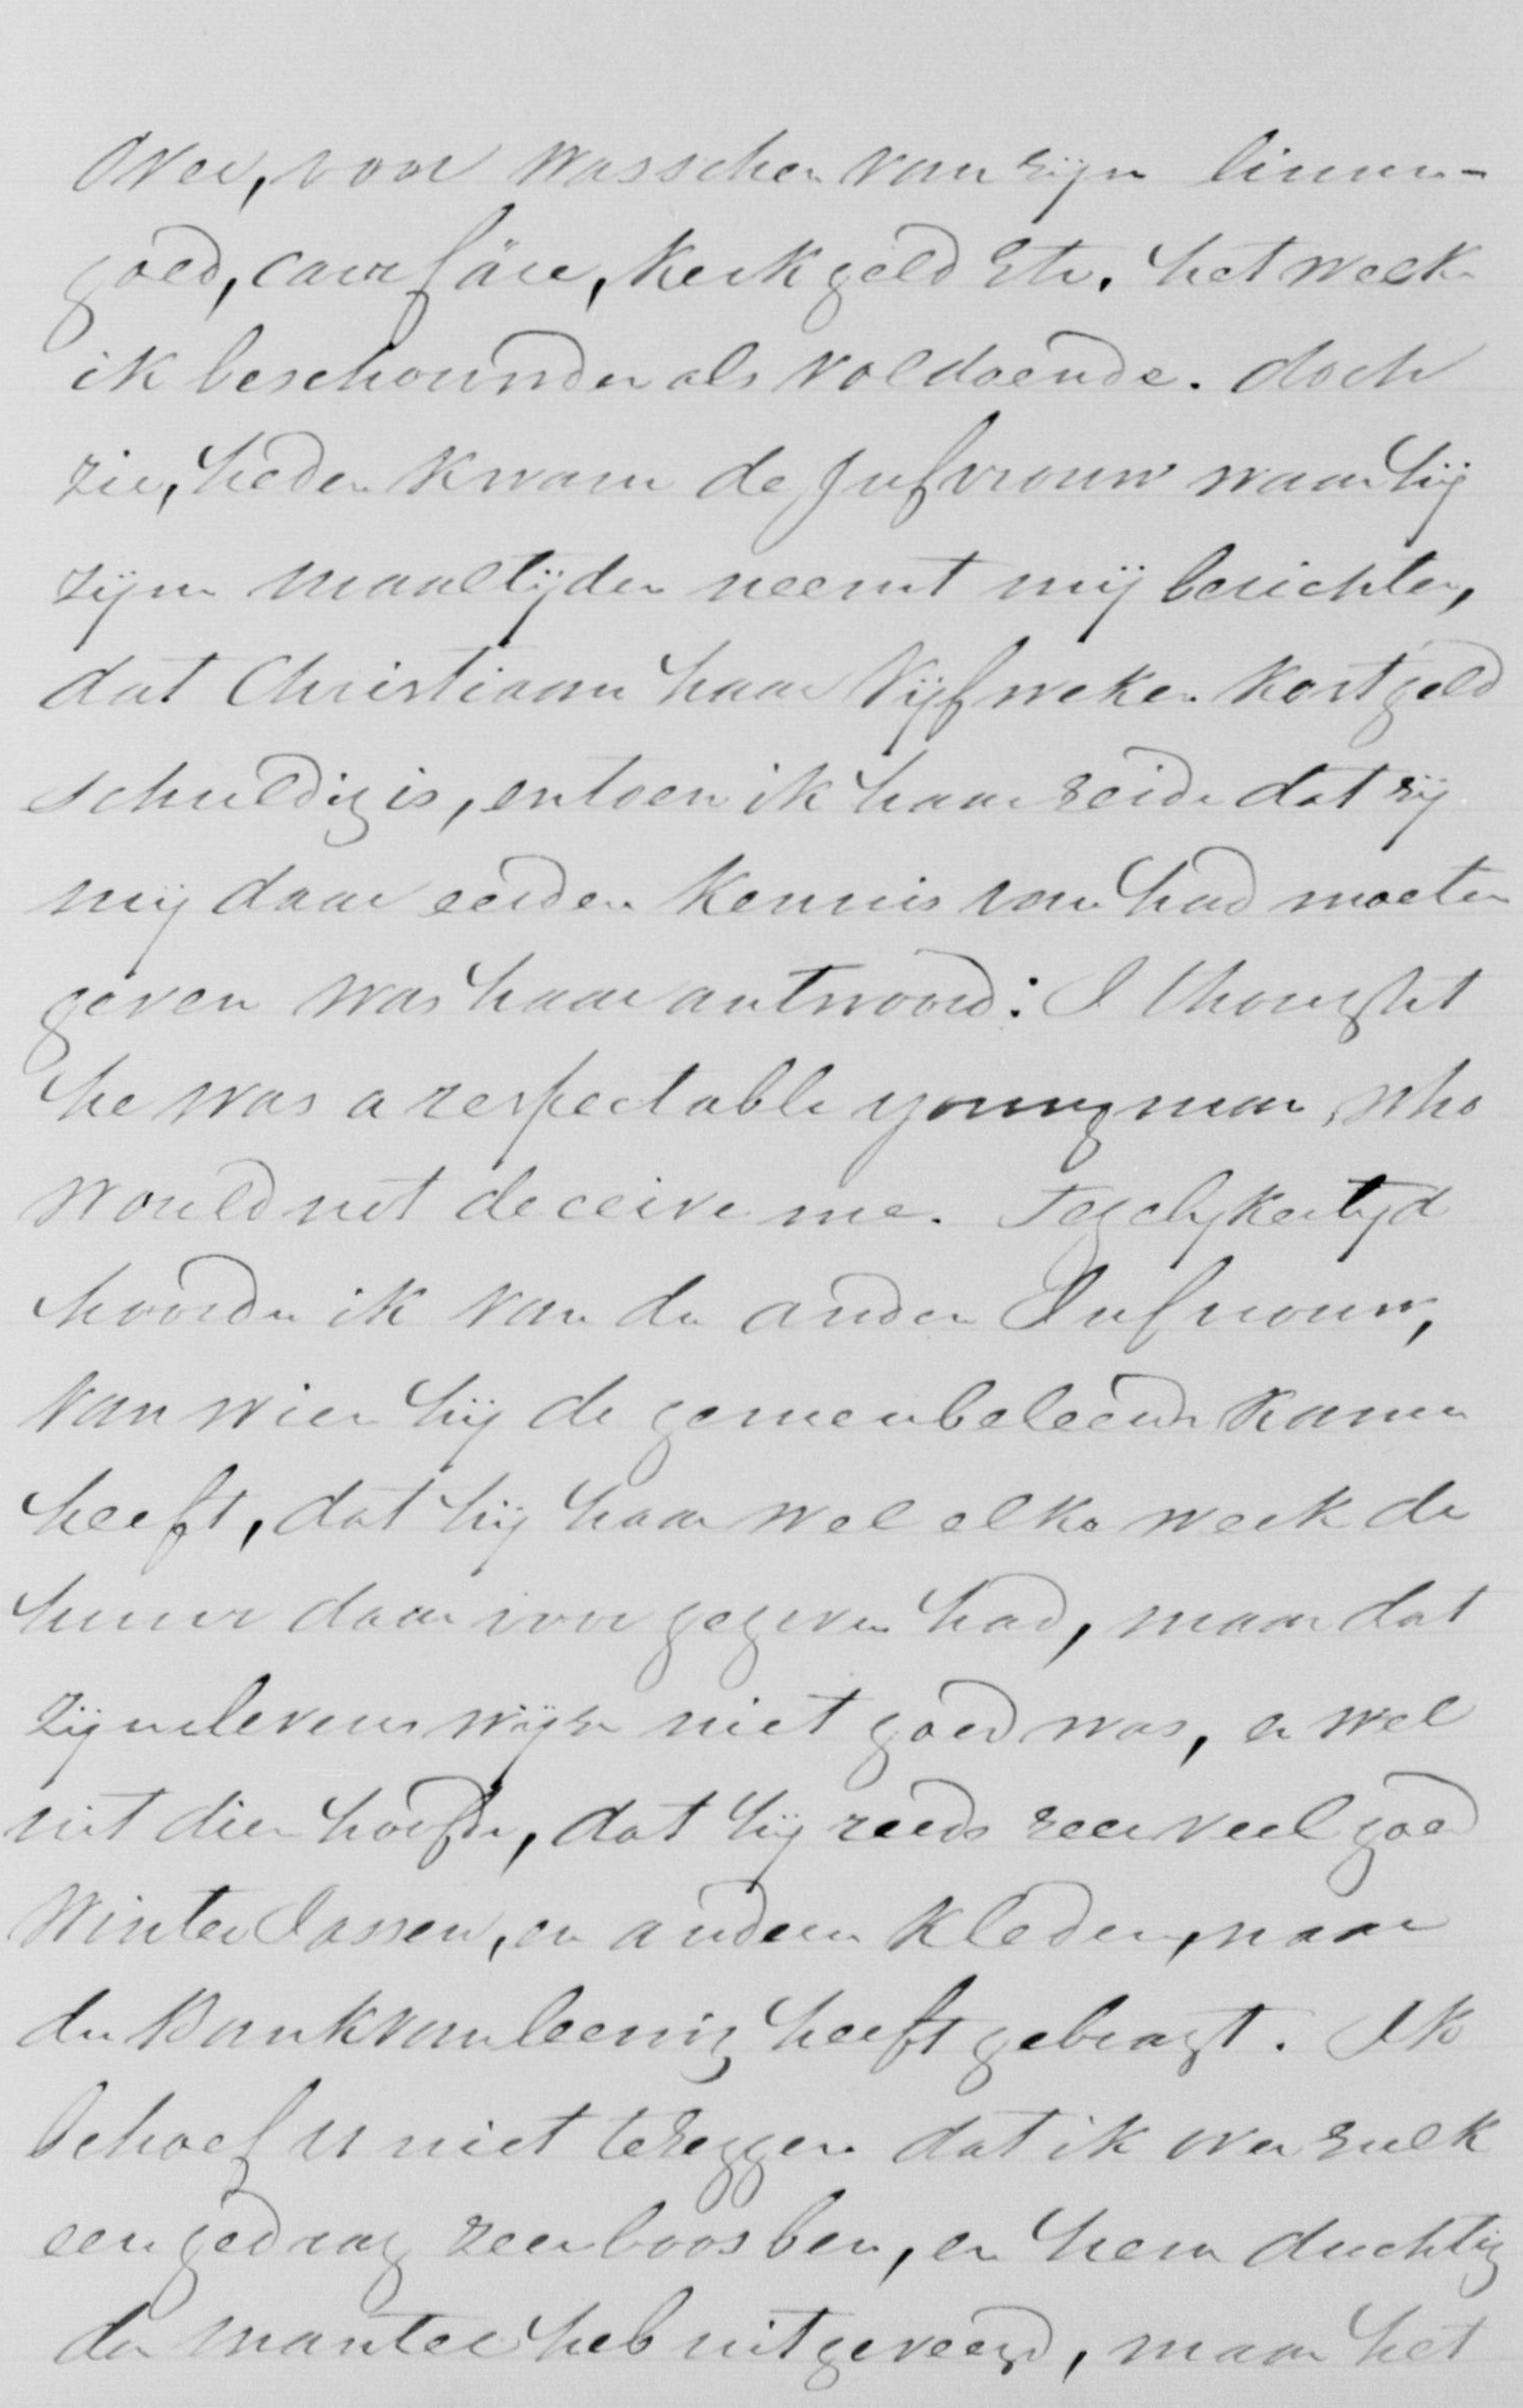 Over, voor wasschen van zijn linnen-
goed, carrfäre, Kerkgeld etc. het welk
ik beschouwde als voldoende. doch
zie, heden kwam de Jufvrouw waar hij
zijne maaltijden neemt mij berichten,
dat Christiaan haar Vijf weken Kostgeld
schuldig is, en toen ik haar zeide dat zij
mij daar eerder kennis van had moeten
geven was haar antwoord: I thought
he was a respectable young man, who
would not deceive me. Tegelijkertijd
hoorde ik van de andere Jufvrouw,
van wien hij de gemeubeleerde Kamer
heeft, dat hij haar wel elke week de
huur daar voor gegeven had, maar dat
zijne levens wijze niet goed was, en wel
uit dien hoofde, dat hij reeds zeer veel goed
Winter Jassen, en andere Kleden, naar
de Bank van leenig heeft gebragt. Ik
behoef U niet te zeggen dat ik over zulk
een gedrag zeer boos ben, en hem duchtig
de mantel heb uitgeveegd, maar het